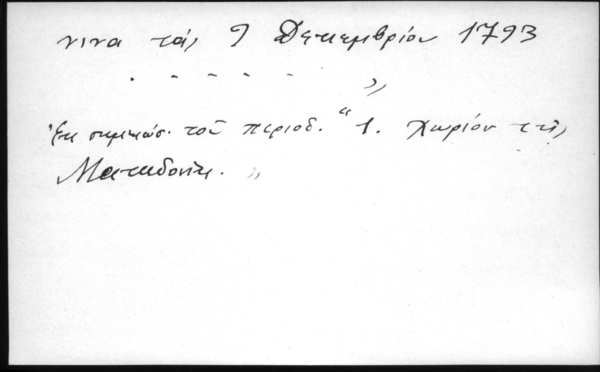 νινα τάς 9 Δεκεμβρίου 1793
. - - - - - „
Ἐκ σημειώσ. τοῦ περιοδ. " 1. χωρίον τῆς
Μακεδονίας. „